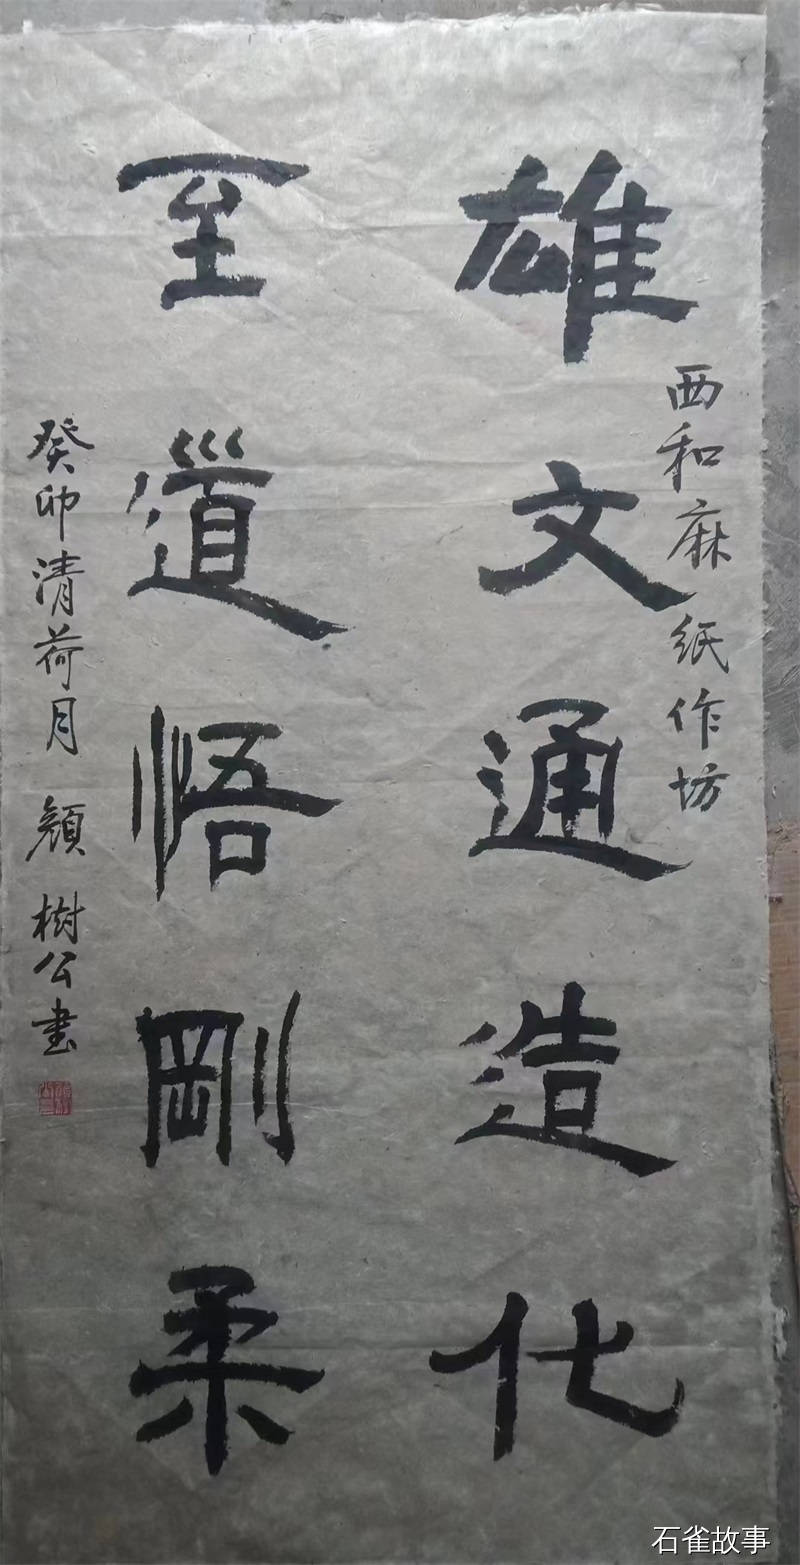 雄文通造化
西和麻纸作坊
至道悟剛柔
癸卯清荷月 顏樹公書
石雀故事